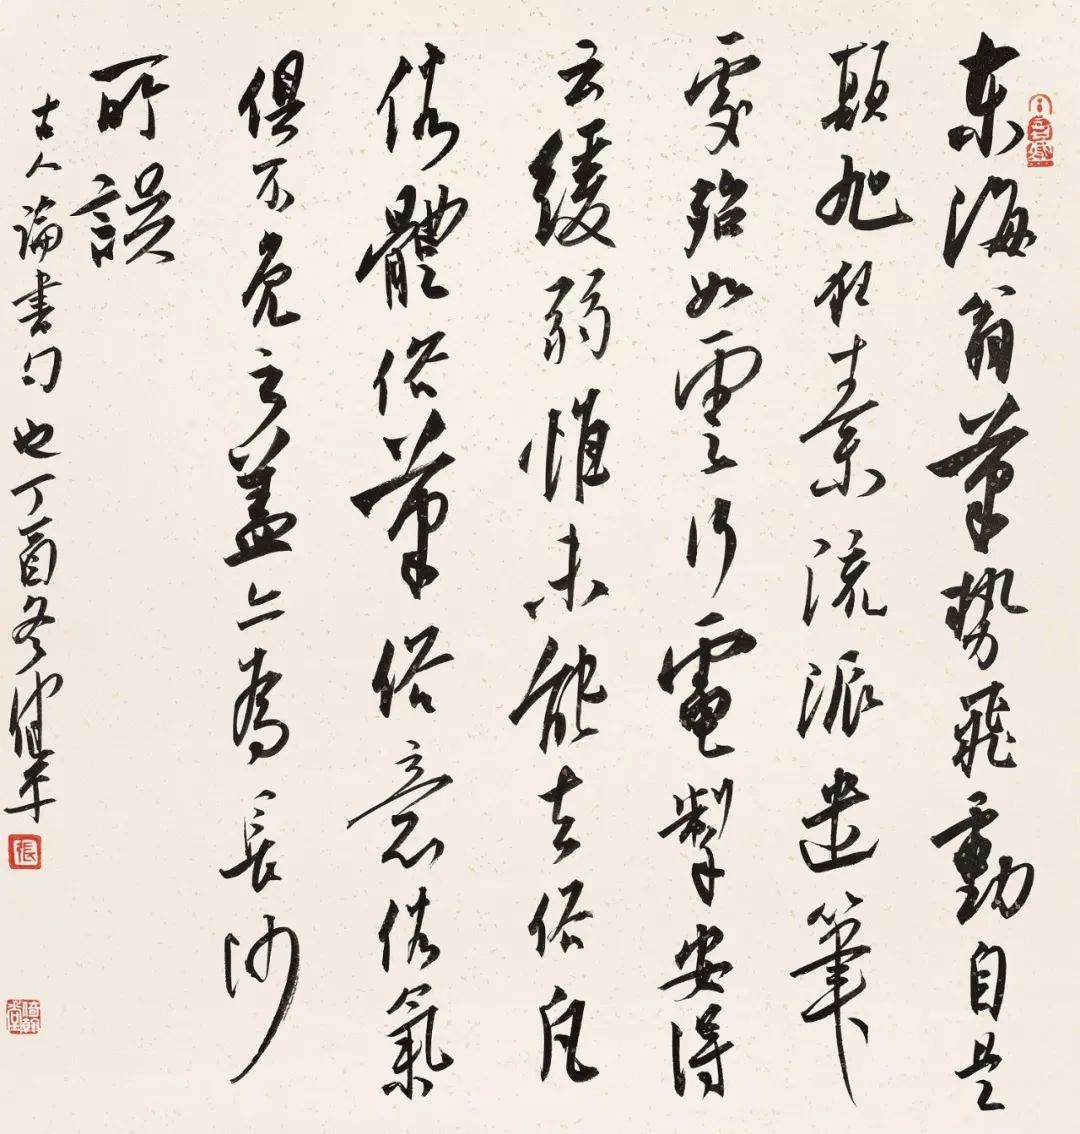 東海翁筆勢飛動自是
顛旭狂素流派遣筆
處殆如雲行電掣安得
云緩弱惟未能去俗凡
俗體俗筆俗意俗氣
俱不免之蓋亦為長沙
所誤
古人論書句也丁酉冬
張